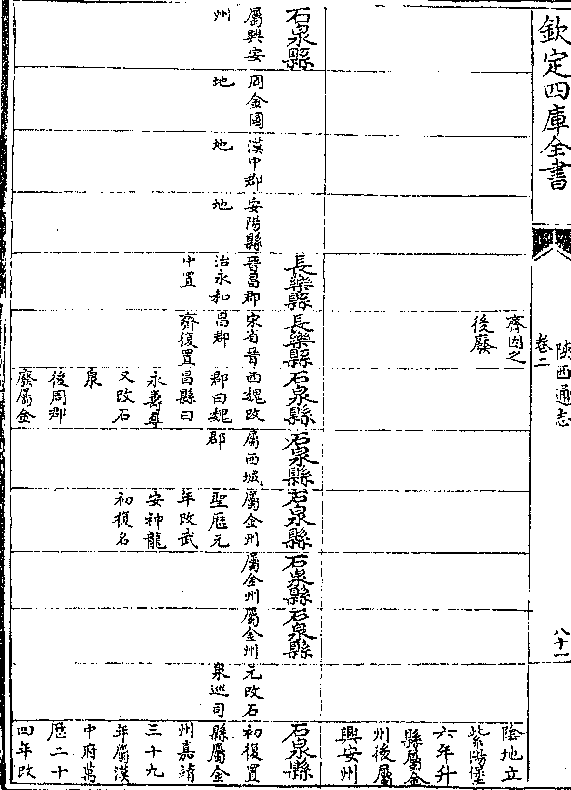 欽定四庫全書
陝西通志
卷二
八十一
齊因之
後廢
陰地立
紫陽堡
六年升
縣屬金
州後屬
興安州
石泉縣
屬興安
州
周金國
地
漢中郡
地
安陽縣
地
長樂縣
晉昌郡
治永和
中置
長樂縣
宋省晉
昌郡
齊復置
石泉縣
西魏改
郡曰魏
昌縣曰
永尋
又改石
泉
後周郡
廢屬金
石泉縣
屬西城
郡
石泉縣
屬金州
聖厯元
年改武
安神龍
初復名
石泉縣
屬金州
石泉縣
屬金州
元改石
泉巡司
石泉縣
初復置
縣屬金
州嘉靖
三十九
年屬漢
中府萬
厯二十
四年改